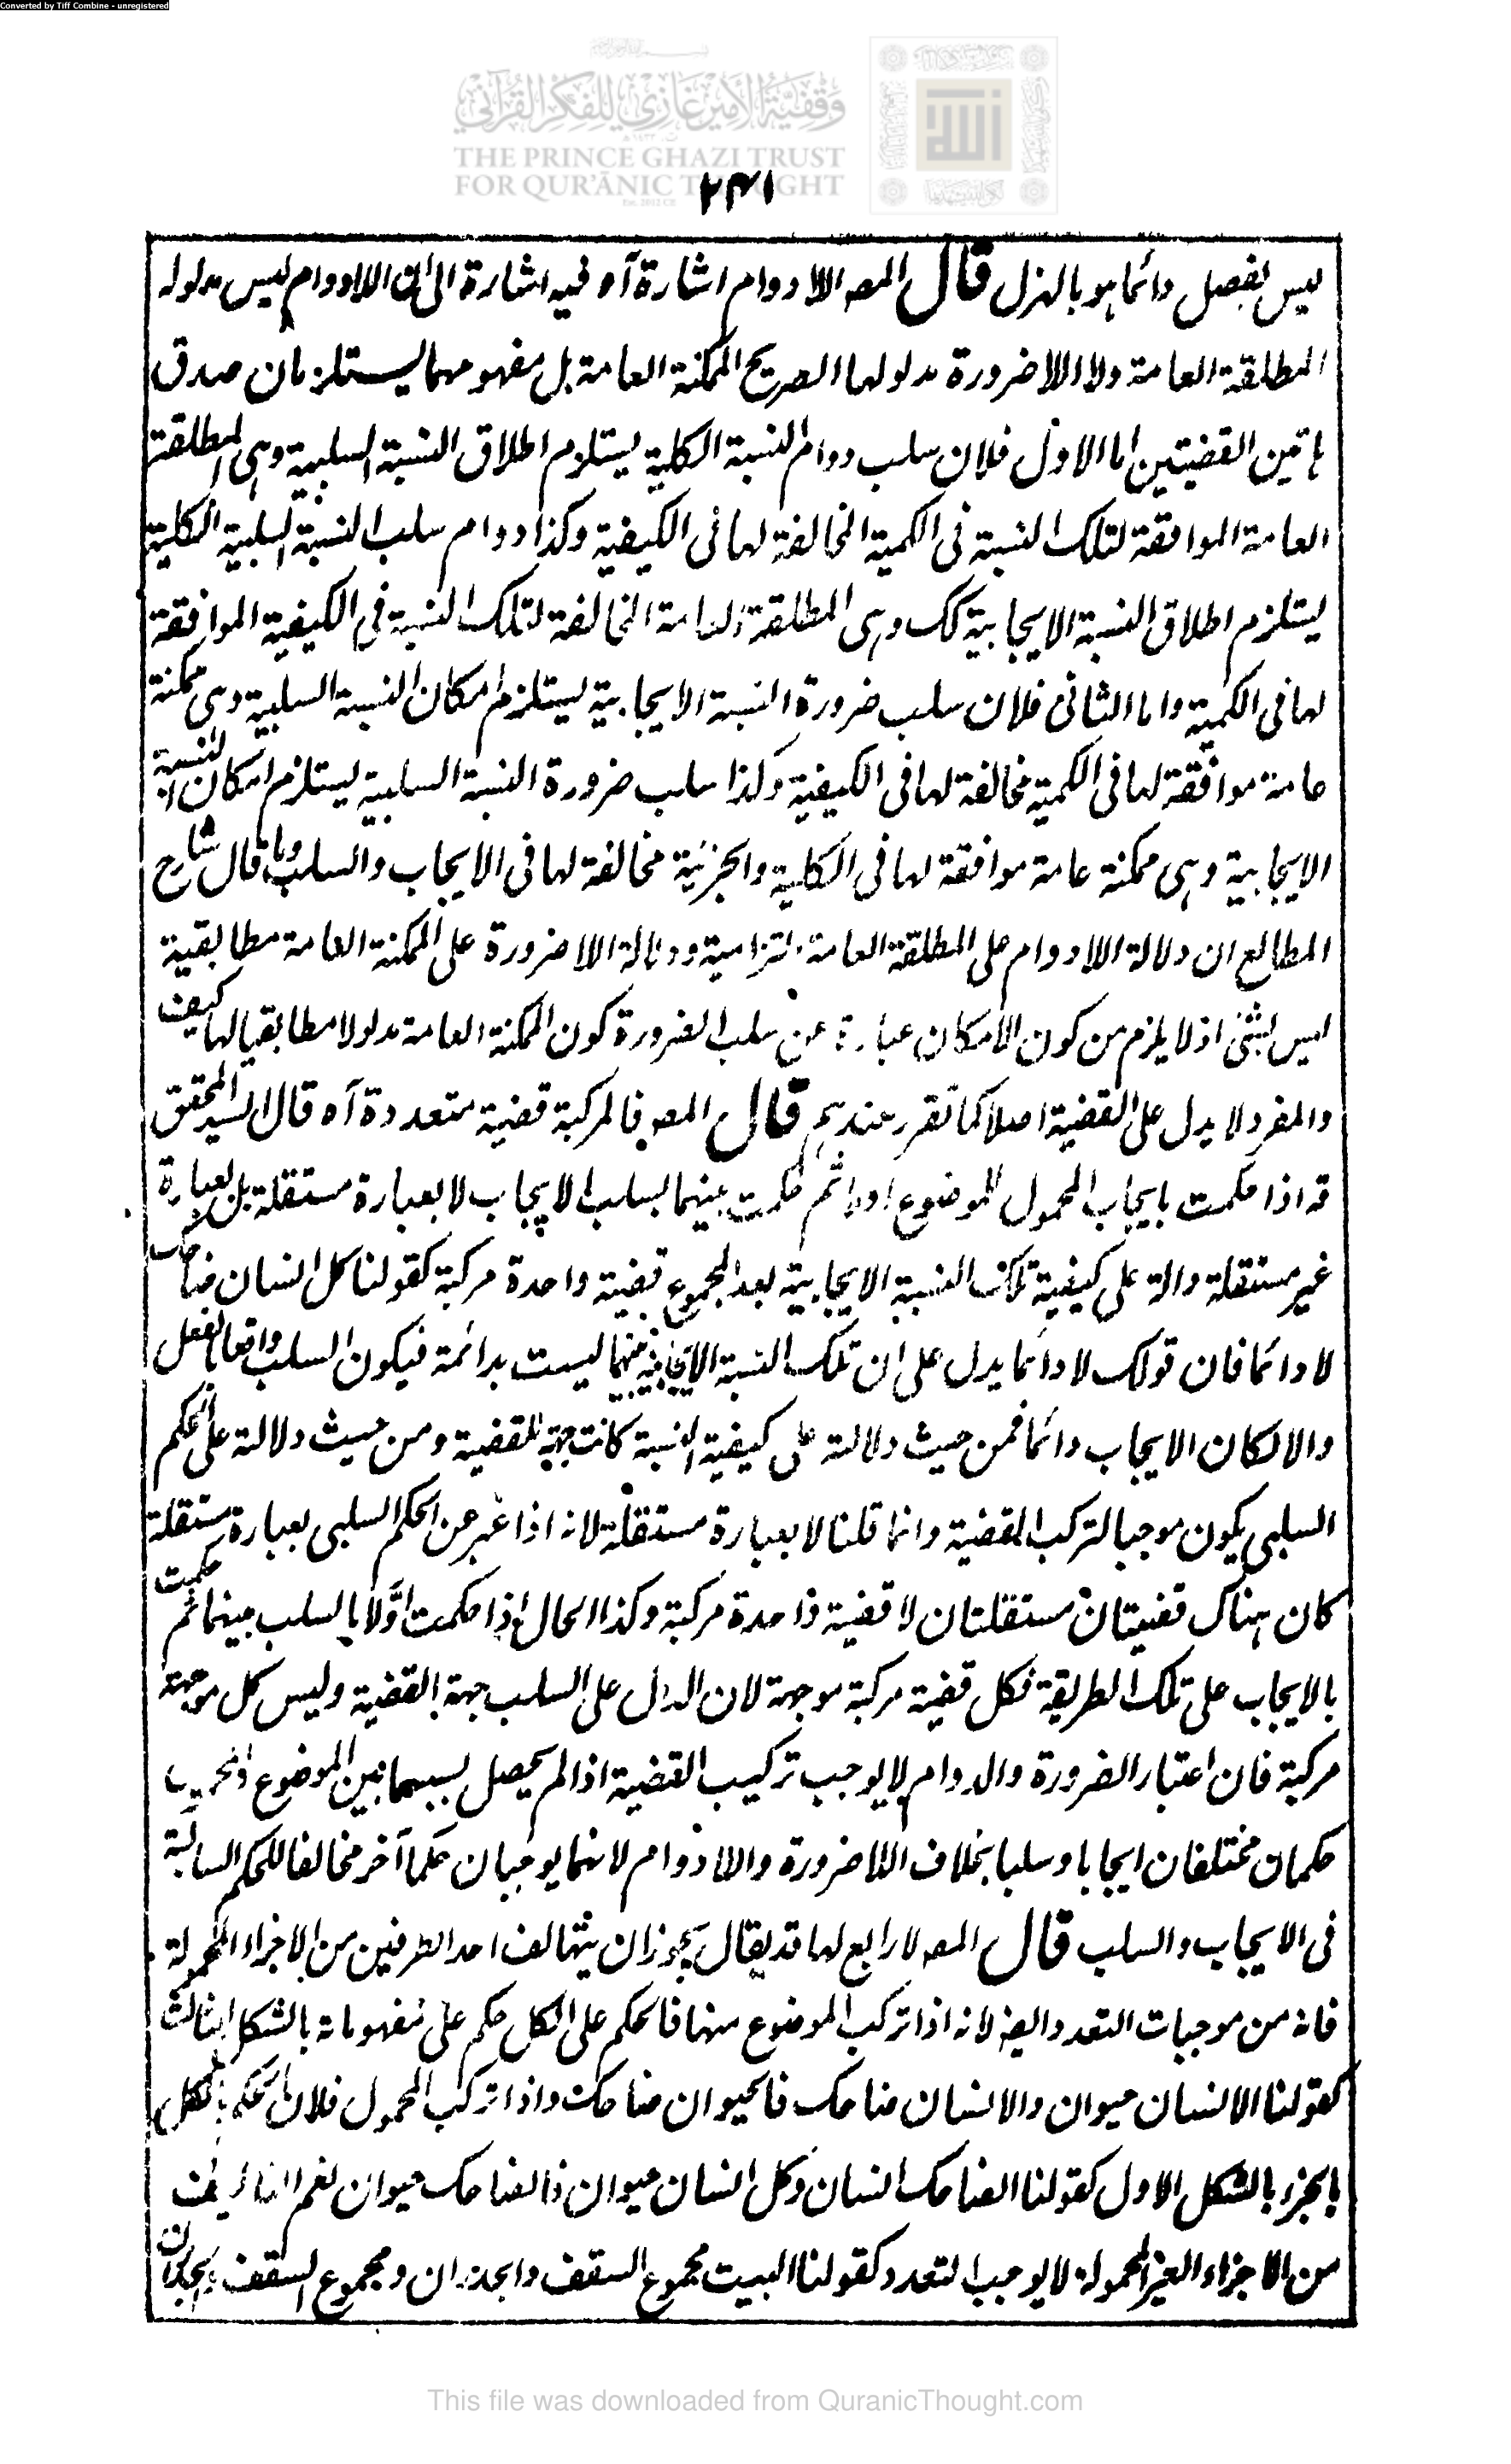 Converted by Tiff Combine - unregistered
وقفية الأمير غازي للفكر القرآني
THE PRINCE GHAZI TRUST
FOR QUR'ĀNIC THOUGHT
۲۴۱
ليس بفصل دائما ہو بالہزل قال المصہ اللادوام اشارة آہ فيہ اشارة الى ان اللادوام ليس مدلولہ
المطلقة العامة ولا اللاضرورة مدلولها الصريح الممكنة العامة بل مفہومہما يستلزمان صدق
ہاتين القضيتين اما الاول فلان سلب دوام النسبة الكلية يستلزم اطلاق النسبة السلبية وہى المطلقة
العامة الموافقة لتلك النسبة فى الكمية المخالفة لها فى الكيفية وكذا دوام سلب النسبة السلبية الكلية
يستلزم اطلاق النسبة الايجابية كك وہى المطلقة العامة المخالفة لتلك النسبة فى الكيفية الموافقة
لها فى الكمية واما الثانى فلان سلب ضرورة النسبة الايجابية يستلزم امكان النسبة السلبية وہى ممكنة
عامة موافقة لها فى الكمية مخالفة لها فى الكيفية وكذا سلب ضرورة النسبة السلبية يستلزم امكان النسبة
الايجابية وہى ممكنة عامة موافقة لها فى الكلية والجزئية مخالفة لها فى الايجاب والسلب وما قال شارح
المطالع ان دلالة اللادوام على المطلقة العامة التزامية ودلالة اللاضرورة على الممكنة العامة مطابقية
ليس بشئ اذ لا يلزم من كون الامكان عبارة عن سلب الضرورة كون الممكنة العامة مدلولا مطابقيا لها كيف
والمفرد لا يدل على القضية اصلا كما تقرر عندہم قال المصہ فالمركبة قضية متعددة آہ قال السيد المحقق
قہ اذا حكمت بايجاب المحمول للموضوع اولا ثم حكمت بينهما بسلب الايجاب لا بعبارة مستقلة بل بعبارة
غير مستقلة دالة على كيفية تلك النسبة الايجابية يعد المجموع قضية واحدة مركبة كقولنا كل انسان ضاحك
لا دائما فان قولك لا دائما يدل على ان تلك النسبة الايجابية بينهما ليست بدائمة فيكون السلب واقعا بالفعل
والا لكان الايجاب دائما فمن حيث دلالتہ على كيفية النسبة كانت جہة للقضية ومن حيث دلالتہ على الحكم
السلبى يكون موجبا لتركب القضية وانما قلنا لا بعبارة مستقلة لانہ اذا عبر عن الحكم السلبى بعبارة مستقلة
كان ہناك قضيتان مستقلتان لا قضية واحدة مركبة وكذا الحال اذا حكمت اولا بالسلب بينهما ثم حكمت
بالايجاب على تلك الطريقة فكل قضية مركبة موجہة لان الدال على السلب جہة القضية وليس كل موجہة
مركبة فان اعتبار الضرورة والدوام لا يوجب تركيب القضية اذ لم يحصل بسببہما بين الموضوع والمحمول
حكمان مختلفان ايجابا وسلبا بخلاف اللاضرورة واللادوام لانہما يوجبان حكما آخر مخالفا للحكم السابق
فى الايجاب والسلب قال المصہ لا رابع لها قد يقال يجوز ان يتالف احد الطرفين من الاجزاء المحمولة
فانہ من موجبات التعدد ايضہ لانہ اذا تركب الموضوع منہا فالحكم على الكل حكم على مفہوماتہ بالشكل الثالث
كقولنا الانسان حيوان والانسان ضاحك فالحيوان ضاحك واذا تركب المحمول فلان الحكم بالكل
بالجزء بالشكل الاول كقولنا الضاحك انسان وكل انسان حيوان فالضاحك حيوان نعم التاليف
من الاجزاء الغير المحمولة لا يوجب التعدد كقولنا البيت مجموع السقف والجدران ومجموع السقف والجدران
This file was downloaded from QuranicThought.com